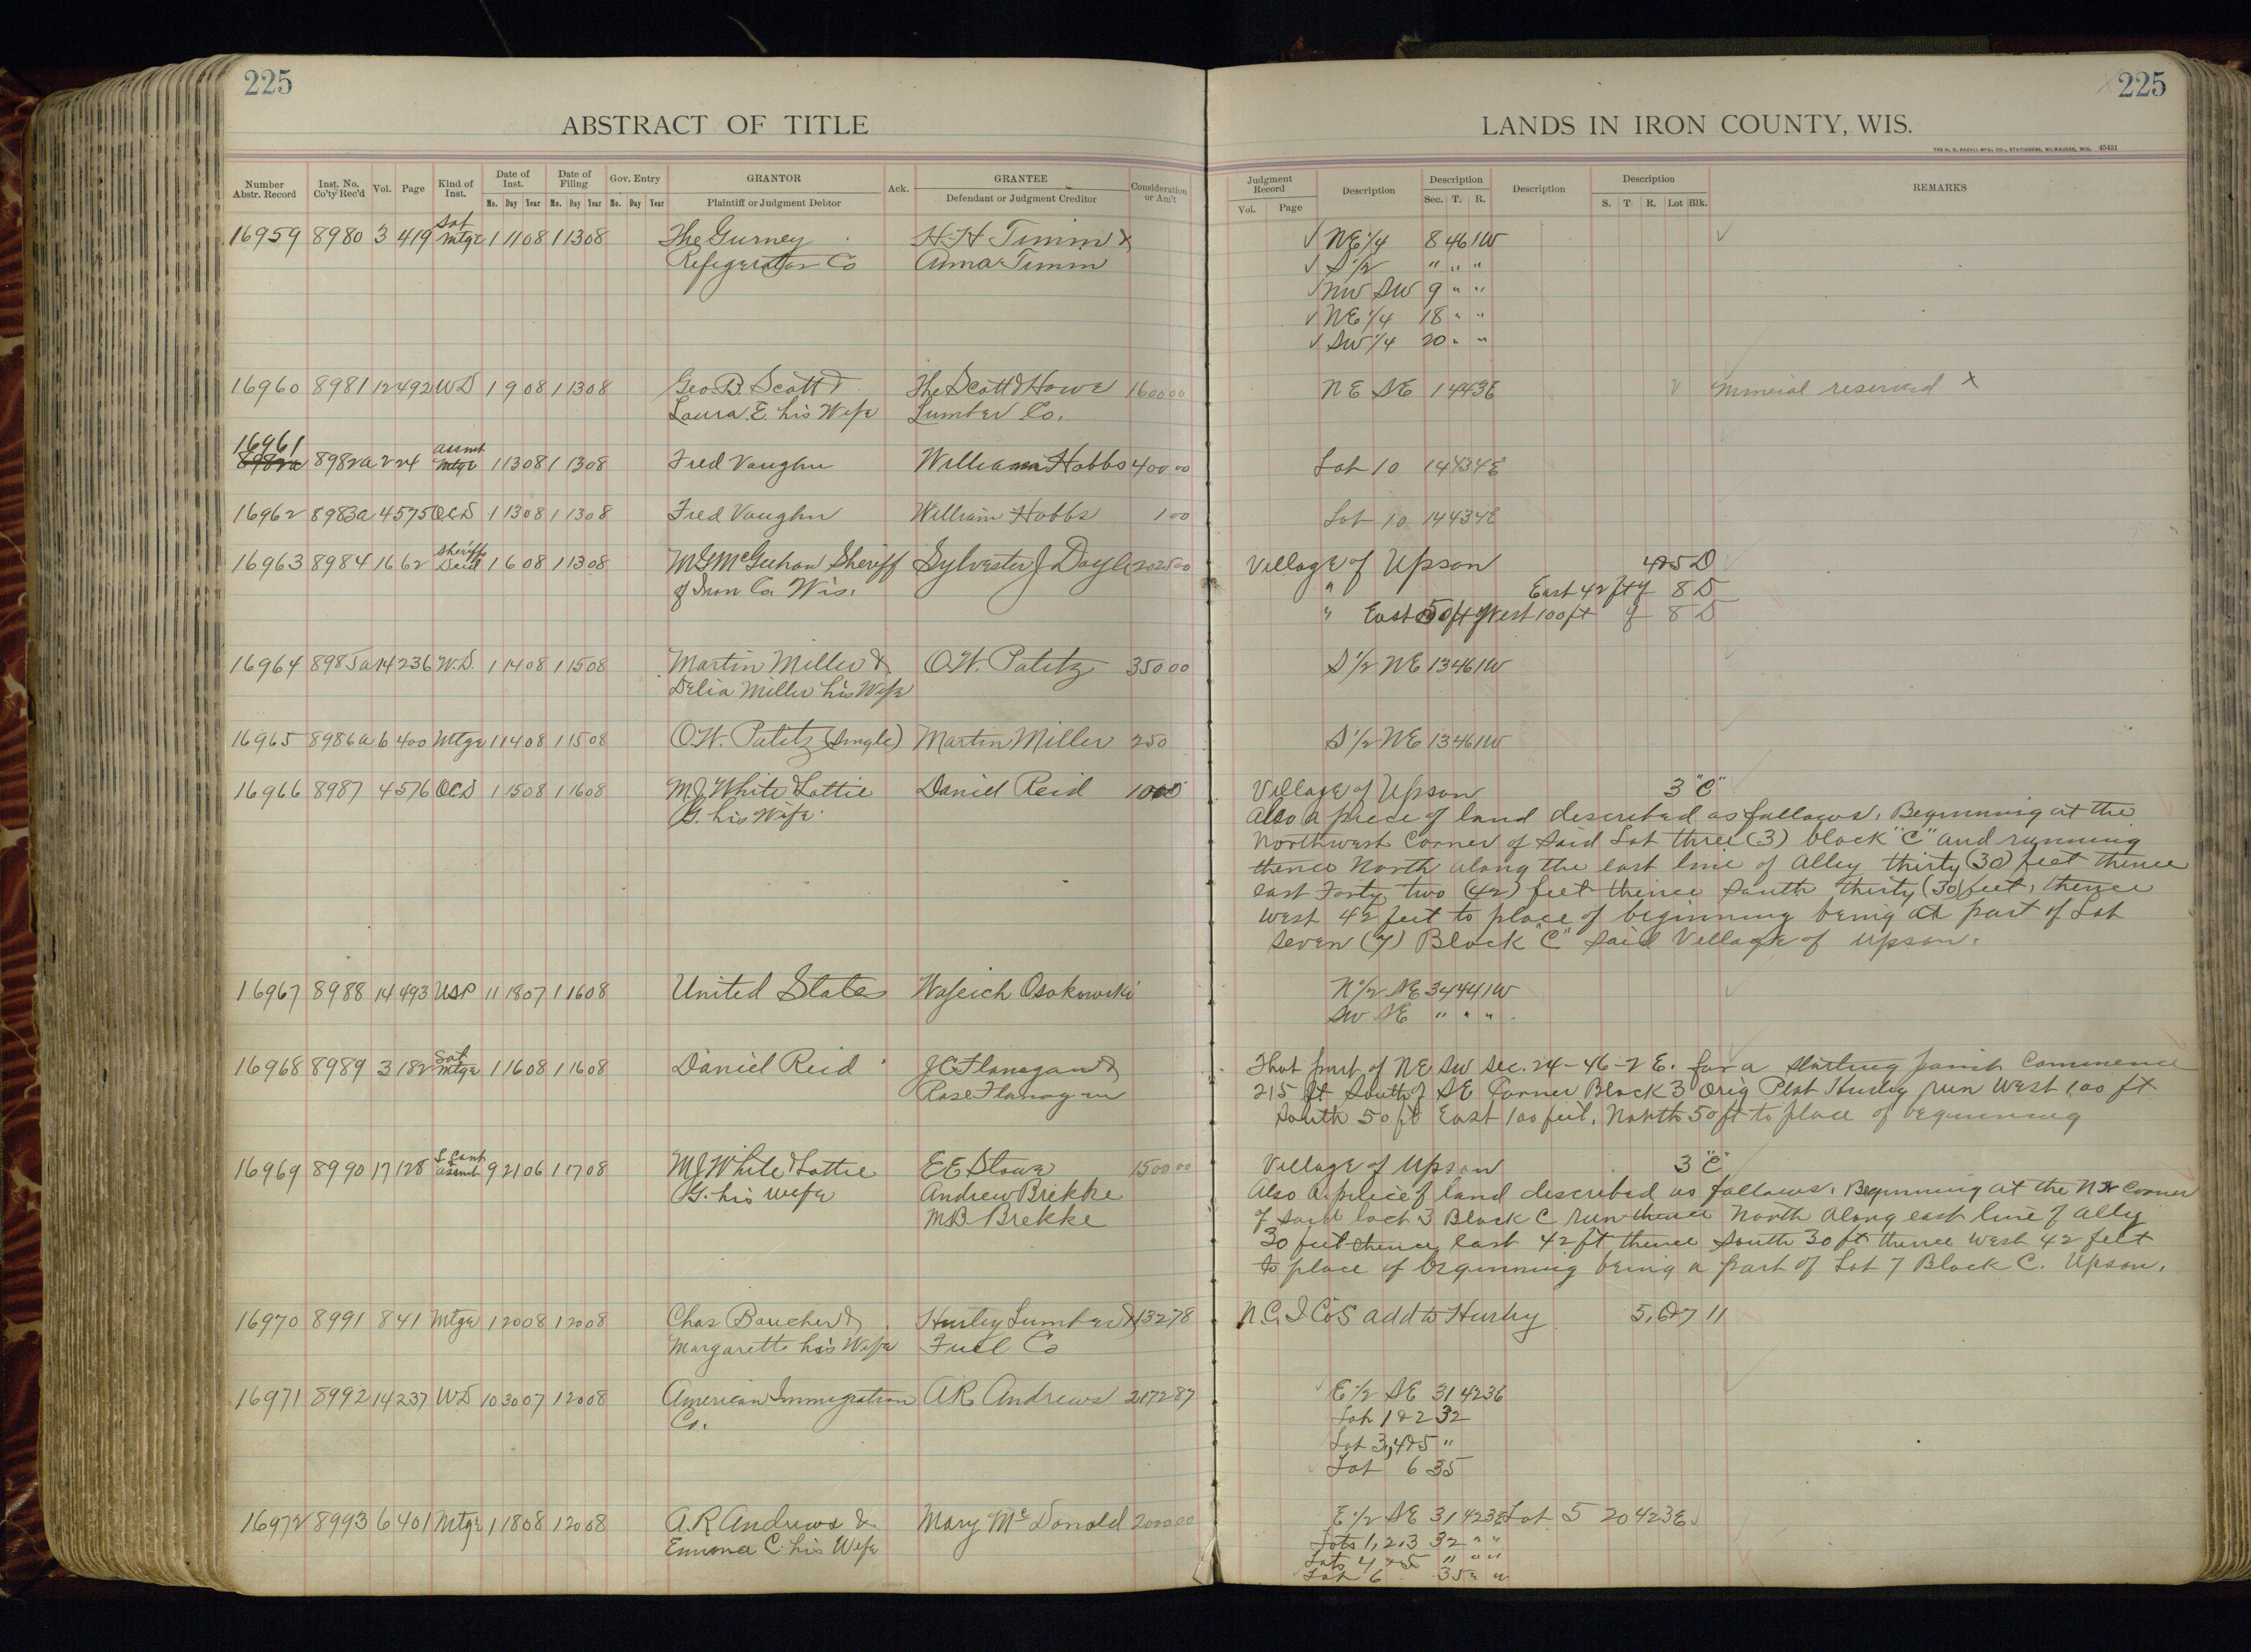 225
225
ABSTRACT OF TITLE
LANDS IN IRON COUNTY, WIS.
THE H. G. RAZALL MFG. CO., STATIONERS, MILWAUKEE, WIS. 45431
Number Abstr. Record Inst. No. Co'ty Rec'd Vol. Page Kind of Inst. Date of Inst. Mo. Day Year Date of Filing Mo. Day Year Gov. Entry Mo. Day Year GRANTOR Plaintiff or Judgment Debtor Ack. GRANTEE Defendant or Judgment Creditor Consideration or Am't
Judgment Record Vol. Page Description Description Sec. T. R. Description Description S. T. R. Lot Blk. REMARKS
16959 8980 3 419 Sat Mtge 1 11 08 1 13 08 The Gurney H.H. Timm &
Refigerator Co Anna Timm
✓ NE 1/4 8 46 1W
✓ S 1/2 " " "
✓ NW SW 9 " "
✓ NE 1/4 18 " "
✓ SW 1/4 20 " "
16960 8981 12 492 WD 1 9 08 1 13 08 Geo. B. Scott & The Scott & Howe 1600 00
Laura E. his Wife Lumber Co.
NE SE 1 44 3E ✓ Mineral reserved x
16961
8982a 8982a 2 24 Assmt Mtge 1 13 08 1 13 08 Fred Vaughn William Hobbs 400 00
Lot 10 14 43 4E
16962 8983a 4 575 QCD 1 13 08 1 13 08 Fred Vaughn William Hobbs 1 00
Lot 10 14 43 4E
16963 8984 16 62 Sheriffs Deed 1 6 08 1 13 08 M.J. McGeehan Sheriff Sylvester J Doyle 2025 00
of Iron Co Wis.
Village of Upson 4&5 D
" East 42 ft of 8 D
" East 50 ft of West 100 ft of 8 D
16964 8985a 14 236 W.D. 1 14 08 1 15 08 Martin Miller & O.W. Patitz 350 00
Delia Miller his Wife
S 1/2 NE 13 46 1W
16965 8986a 6 400 Mtge 1 14 08 1 15 08 O.W. Patitz (single) Martin Miller 250
S 1/2 NE 13 46 1W
16966 8987 4 576 QCD 1 15 08 1 16 08 M.J. White & Lottie Daniel Reid 1 00
G. his Wife
Village of Upson 3 "C"
Also a piece of land described as follows, Beginning at the
Northwest Corner of said Lot three (3) block "C" and running
thence North along the east line of Alley thirty (30) feet thence
east Forty two (42) feet thence South thirty (30) feet, thence
West 42 feet to place of beginning being a part of Lot
Seven (7) Block "C" said Village of Upson.
16967 8988 14 493 USP 11 18 07 1 16 08 United States Wojeich Osokowski
N 1/2 SE 34 44 1W
SW SE " " "
16968 8989 3 182 Sat Mtge 1 16 08 1 16 08 Daniel Reid J.C. Flanagan &
Rose Flanagan
That part of NE SW Sec. 24-46-2 E. for a starting point Commence
215 ft South of SE Corner Block 3 Orig Plat Hurley run West 100 ft
South 50 ft East 100 feet, North 50 ft to place of beginning
16969 8990 17 128 L Cont assmt 9 21 06 1 17 08 M.J. White & Lottie E E Stowe 1500 00
G. his wife Andrew Brekke
M.B. Brekke
Village of Upson 3 "C"
Also a peice of land described as follows, Beginning at the NW Corner
of said loct 3 Block C run thence North along east line of alley
30 feet thence east 42 ft thence South 30 ft thence West 42 feet
to place of beginning being a part of Lot 7 Block C. Upson.
16970 8991 8 41 Mtge 1 20 08 1 20 08 Chas Boucher & Hurley Lumber & 132 78
Margarette his Wife Fuel Co
N.C.I. Co's add to Hurley 5,6&7 11
16971 8992 14 237 WD 10 30 07 1 20 08 American Immigration A.R. Andrews 2172 87
Co.
E 1/2 SE 31 42 3E
Lot 1&2 32
Lot 3,4&5 "
Lot 6 35
16972 8993 6 401 Mtge 1 18 08 1 20 08 A.R. Andrews & Mary McDonald 2000 00
Emma C. his Wife
E 1/2 SE 31 42 3E Lot 5 20 42 3E
Lots 1,2,3 32 " "
Lots 4&5 " " "
Lot 6 35 " "